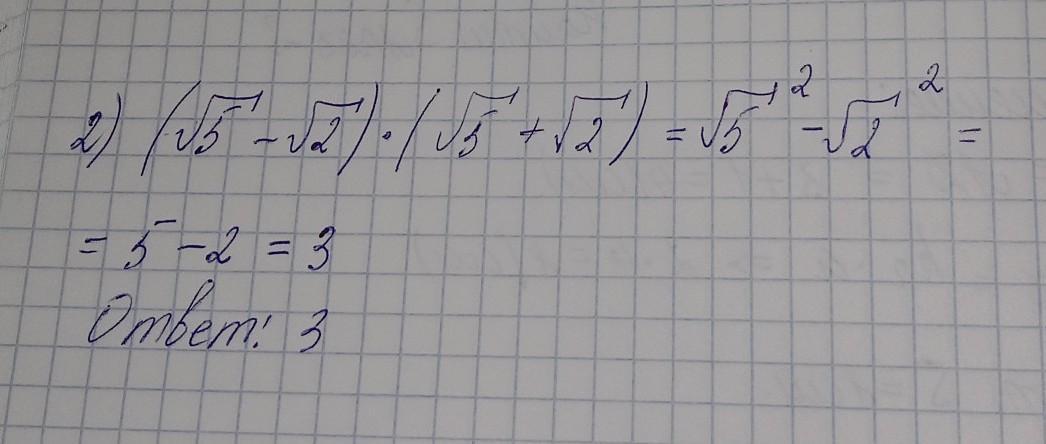 2) (√5 - √2) · (√5 + √2) = √5² - √2² =
= 5 - 2 = 3
Ответ: 3